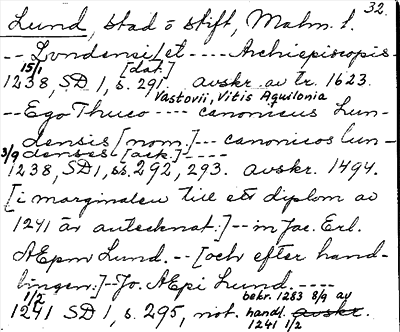 32.
Lund, stad o stift, Malm. l.
-- Lundensi[et ---- Archiepiscopis-
15/1 [dat.]
1238, SD 1, s. 291. avskr. av tr. 1623.
Vastovii, Vitis Aquilonia
-- Ego Thuco ---- canonicus Lun-
densis [nom.]--- canonicos lun-
3/9 denses [ack.] ----
1238, SD 1, ss. 292, 293. avskr. 1494.
[i marginalen till ett diplom av
1241 är antecknat:]-- in Jac. Erl.
AEpm Lund. -- [och efter hand-
lingen:]-- Jo. AEpi Lund. ----
1/2 bekr. 1283 8/9 av
1241 SD 1, s. 295, not. handl. avskr.
1241 1/2